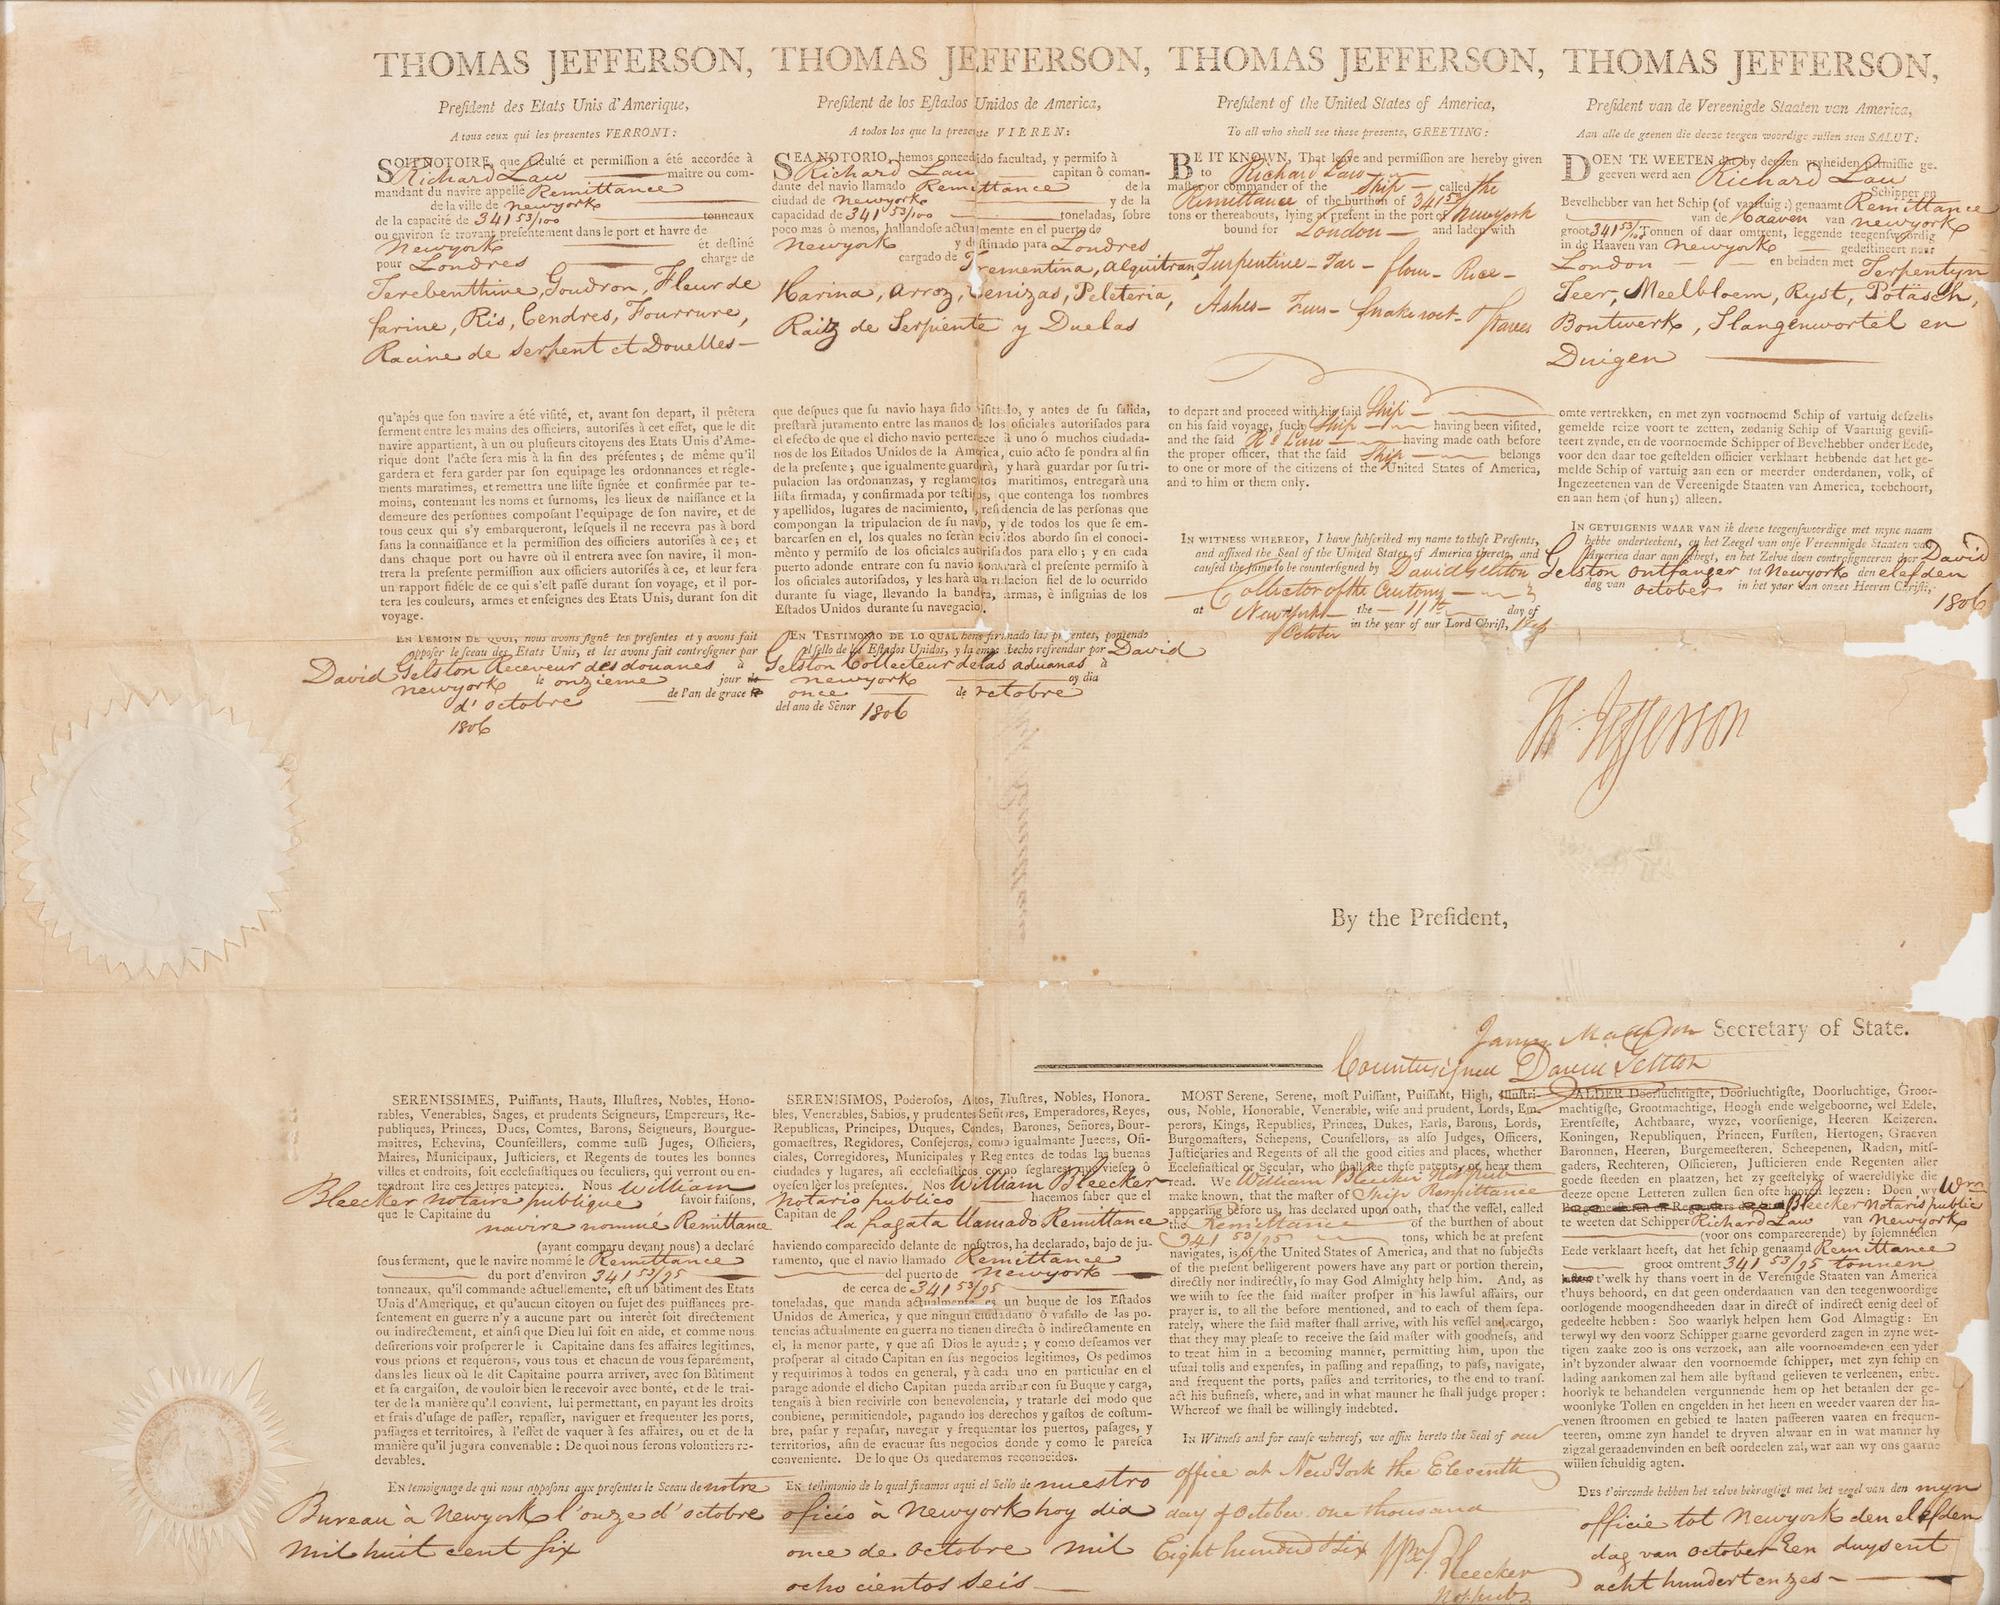 THOMAS JEFFERSON,
President des Etats Unis d'Amerique,
A tous ceux qui les presentes VERRONT:
SOIT NOTOIRE, que faculté et permission a été accordée à
Richard Law maitre ou com-
mandant du navire appellé Remittance
de la ville de Newyork
de la capacité de 341 53/100 tonneaux
ou environ se trovant presentement dans le port et havre de
Newyork et destiné
pour Londres charge de
Terebenthine, Goudron, Fleur de
farine, Ris, Cendres, Fourrure,
Racine de serpent et Douelles
qu'apés que son navire a été visité, et, avant son depart, il prêtera
serment entre les mains des officiers, autorisés à cet effet, que le dit
navire appartient, à un ou plusieurs citoyens des Etats Unis d'Ame-
rique dont l'acte sera mis à la fin des présentes; de même qu'il
gardera et fera garder par son equipage les ordonnances et regle-
ments maratimes, et remettra une liste signée et confirmée par te-
moins, contenant les noms et surnoms, les lieux de naissance et la
demeure des personnes composant l'equipage de son navire, et de
tous ceux qui s'y embarqueront, lesquels il ne recevra pas à bord
sans la connaissance et la permission des officiers autorisés à ce; et
dans chaque port ou havre où il entrera avec son navire, il mon-
trera la presente permission aux officiers autorisés à ce, et leur fera
un rapport fidèle de ce qui s'est passé durant son voyage, et il por-
tera les couleurs, armes et enseignes des Etats Unis, durant son dit
voyage.
EN TEMOIN DE QUOI, nous avons signé les presentes et y avons fait
apposer le sceau des Etats Unis, et les avons fait contresigner par
David Gelston Receveur des douanes à
Newyork le onzieme jour de
d'octobre de l'an de grace
1806
THOMAS JEFFERSON,
President de los Estados Unidos de America,
A todos los que la presente VIEREN:
SEA NOTORIO, hemos concedido facultad, y permiso à
Richard Law capitan ò coman-
dante del navio llamado Remittance de la
ciudad de Newyork y de la
capacidad de 341 53/100 toneladas, sobre
poco mas ô menos, hallandose actualmente en el puerto de
Newyork y destinado para Londres
cargado de Trementina, alquitran
Harina, Arroz, Cenizas, Peleteria,
Raiz de Serpiente y Duelas
que despues que su navio haya sido visitado, y antes de su salida,
prestarà juramento entre las manos de los oficiales autorisados para
el efecto de que el dicho navio pertenece à uno ó muchos ciudada-
nos de los Estados Unidos de la America, cuio acto se pondra al fin
de la presente; que igualmente guardirà, y harà guardar por su tri-
pulacion las ordonanzas, y reglamentos maritimos, entregarà una
lista firmada, y confirmada por testigos, que contenga los nombres
y apellidos, lugares de nacimiento, y residencia de las personas que
compongan la tripulacion de su navio, y de todos los que se em-
barcarsen en el, los quales no seràn recividos abordo sin el conoci-
mènto y permiso de los oficiales autorisados para ello; y en cada
puerto adonde entrare con su navio montrarà el presente permiso à
los oficiales autorisados, y les harà una relacion fiel de lo ocurrido
durante su viage, llevando la bandera, armas, è insignias de los
Estados Unidos durante su navegacio.
EN TESTIMONIO DE LO QUAL hems firmado las presentes, poniendo
el sello de los Estados Unidos, y la emos hecho refrendar por David
Gelston Collecteur de las aduanas à
Newyork oy dia
once de octobre
del ano de Sēnor 1806
THOMAS JEFFERSON,
President of the United States of America,
To all who shall see these presents, GREETING:
BE IT KNOWN, That leave and permission are hereby given
to Richard Law
master or commander of the ship called the
Remittance of the burthen of 341 53/
tons or thereabouts, lying at present in the port of Newyork
bound for London and laden with
Turpentine - Tar - flour - Rice -
Ashes - Furs - Snake root - & staves
to depart and proceed with his said Ship
on his said voyage, such Ship having been visited,
and the said Rd Law having made oath before
the proper officer, that the said Ship belongs
to one or more of the citizens of the United States of America,
and to him or them only.
IN WITNESS WHEREOF, I have subscribed my name to these Presents,
and affixed the Seal of the United States of America thereto, and
caused the same to be countersigned by David Gelston
Collector of the Customs
at NewYork the 11th day of
October in the year of our Lord Christ, 1806
THOMAS JEFFERSON,
President van de Vereenigde Staaten van America,
Aan alle de geenen die deeze teegen woordige zullen sien SALUT:
DOEN TE WEETEN dat by deezen vryheiden permissie ge-
geeven werd aen Richard Law
Schipper en
Bevelhebber van het Schip (of vaartuig:) genaamt Remittance
van de Haaven van Newyork
groot 341 53/100 Tonnen of daar omtrent, leggende teegenswoordig
in de Haaven van Newyork gedestineert naar
London en beladen met Terpentyn
Teer, Meelbloem, Ryst, Potäsch,
Bontwerk, Slangenwortel en
Duigen
omte vertrekken, en met zyn voornoemd Schip of vartuig deszelfs
gemelde reize voort te zetten, zodanig Schip of Vaartuig gevisi-
teert zynde, en de voornoemde Schipper of Bevelhebber onder Eede,
voor den daar toe gestelden officier verklaart hebbende dat het ge-
melde Schip of vartuig aan een or meerder onderdanen, volk, of
Ingezeetenen van de Vereenigde Staaten van America, toebehoort,
en aan hem (of hun;) alleen.
IN GETUIGENIS WAAR VAN ik deeze teegenswoordige met myne naam
hebbe onderteekent, en het Zeegel van onse Vereennigde Staaten van
America daar aan gehegt, en het Zelve doen contrasigneeren door David
Gelston ontfanger tot Newyork den elefden
dag van October in het yaar van onzes Heeren Christi,
1806
Th: Jefferson
By the President,
James Madison Secretary of State.
Countersigned David Gelston
SERENISSIMES, Puissants, Hauts, Illustres, Nobles, Hono-
rables, Venerables, Sages, et prudents Seigneurs, Empereurs, Re-
publiques, Princes, Ducs, Comtes, Barons, Seigneurs, Bourgue-
maitres, Echevins, Counseillers, comme aussi Juges, Officiers,
Maires, Municipaux, Justiciers, et Regents de toutes les bonnes
villes et endroits, soit ecclesiastiques ou seculiers, qui verront ou en-
tendront lire ces lettres patentes. Nous William
Bleecker notaire publique savoir faisons,
que le Capitaine du
navire nommé Remittance
(ayant comparu devant nous) a declaré
sous serment, que le navire nommé le Remittance
du port d'environ 341 53/95
tonneaux, qu'il commande actuellement, est un bâtiment des Etats
Unis d'Amerique, et qu'aucun citoyen ou sujet des puissances pre-
sentement en guerre n'y a aucune part ou interêt soit directement
ou indirectement, et ainsi que Dieu lui soit en aide, et comme nous
desirerions voir prosperer le dit Capitaine dans ses affaires legitimes,
vous prions et requerons, vous tous et chacun de vous séparement,
dans les lieux où le dit Capitaine pourra arriver, avec son Bâtiment
et sa cargaison, de vouloir bien le recevoir avec bonté, et de le trai-
ter de la manière qu'il convient, lui permettant, en payant les droits
et frais d'usage de passer, repasser, naviguer et frequenter les ports,
passages et territoires, à l'effet de vaquer à ses affaires, ou et de la
manière qu'il jugera convenable: De quoi nous serons volontiers re-
devables.
EN temoignage de qui nous apposons aux presentes le Sceau de notre
Bureau à Newyork l'onze d'octobre
mil huit cent six
SERENISIMOS, Poderosos, Altos, Illustres, Nobles, Honora-
bles, Venerables, Sabios, y prudentes Señores, Emperadores, Reyes,
Republicas, Principes, Duques, Condes, Barones, Señores, Bour-
gomaestres, Regidores, Consejeros, como igualmante Jueces, Ofi-
ciales, Corregidores, Municipales y Regentes de todas las buenas
ciudades y lugares, asi ecclesiasticos como seglares, que viesen ò
oyesen lèer los presentes. Nos William Bleecker
Notario publico hacemos saber que el
Capitan de la fragata llamado Remittance
haviendo comparecido delante de nosotros, ha declarado, bajo de ju-
ramento, que el navio llamado Remittance
del puerto de Newyork
de cerca de 341 53/95
toneladas, que manda actualmente es un buque de los Estados
Unidos de America, y que ningun ciudadano ô vasallo de las po-
tencias actualmente en guerra no tienen directa ò indirectamente en
el, la menor parte, y que asi Dios le ayude; y como deseamos ver
prosperar al citado Capitan en sus negocios legitimos, Os pedimos
y requirimos à todos en general, y à cada uno en particular en el
parage adonde el dicho Capitan pueda arribar con su Buque y carga,
tengais à bien recivirle con benevolencia, y tratarle del modo que
conbiene, permitiendole, pagando los derechos y gastos de costum-
bre, pasar y repasar, navegar y frequentar los puertos, pasages, y
territorios, afin de evacuar sus negocios donde y como le paresca
conveniente. De lo que Os quedaremos reconocidos.
EN testimonio de lo qual firamos aqui el Sello de nuestro
oficio à Newyork hoy dia
once de octobre mil
ocho cientos seis
MOST Serene, Serene, most Puissant, Puissant, High, Illustri-
ous, Noble, Honorable, Venerable, wise and prudent, Lords, Em-
perors, Kings, Republics, Princes, Dukes, Earls, Barons, Lords,
Burgomasters, Schepens, Counsellors, as also Judges, Officers,
Justiciaries and Regents of all the good cities and places, whether
Ecclesiastical or Secular, who shall see these patents, or hear them
read. We William Bleecker Not Pub
make known, that the master of Ship Remittance
appearing before us, has declared upon oath, that the vessel, called
the Remittance of the burthen of about
341 53/95 tons, which he at present
navigates, is of the United States of America, and that no subjects
of the present belligerent powers have any part or portion therein,
directly nor indirectly, so may God Almighty help him. And, as
we wish to see the said master prosper in his lawful affairs, our
prayer is, to all the before mentioned, and to each of them sepa-
rately, where the said master shall arrive, with his vessel and cargo,
that they may please to receive the said master with goodness, and
to treat him in a becoming manner, permitting him, upon the
usual tolls and expenses, in passing and repassing, to pass, navigate,
and frequent the ports, passes and territories, to the end to trans-
act his business, where, and in what manner he shall judge proper:
Whereof we shall be willingly indebted.
In Witness and for cause whereof, we affix hereto the Seal of our
office at New York the Eleventh
day of October one thousand
Eight hundred & six Wm Bleecker
Not: pub:
ALDER Doorluchtigste, Doorluchtigste, Doorluchtige, Groor-
machtigste, Grootmachtige, Hoogh ende welgeboorne, wel Edele,
Erentfeste, Achtbaare, wyze, voorsienige, Heeren Keizeren.
Koningen, Republiquen, Princen, Fursten, Hertogen, Graeven
Baronnen, Heeren, Burgemeesteren, Scheepenen, Raden, mits-
gaders, Rechteren, Officieren, Justicieren ende Regenten aller
goede steeden en plaatzen, het zy geestelyke of waereldlyke die
deeze opene Letteren zullen sien ofte hooren leezen: Doen wy Wm
Bleecker Notaris public
te weeten dat Schipper Richard Law van Newyork
(voor ons compareerende) by solemneelen
Eede verklaart heeft, dat het schip genaamd Remittance
groot omtrent 341 53/95 tonnen
t'welk hy thans voert in de Verenigde Staaten van America
t'huys behoord, en dat geen onderdaanen van den teegenwoordige
oorlogende moogendheeden daar in direct of indirect eenig deel of
gedeelte hebben: Soo waarlyk helpen hem God Almagtig: En
terwyl wy den voorz Schipper gaarne gevorderd zagen in zyne wet-
tigen zaake zoo is ons verzoek, aan alle voornoemdeen een yder
in't byzonder alwaar den voornoemde schipper, met zyn schip en
lading aankomen zal hem alle bystand gelieven te verleenen, enbe-
hoorlyk te behandelen vergunnende hem op het betaalen der ge-
woonlyke Tollen en ongelden in het heen en weeder vaaren der ha-
venen stroomen en gebied te laaten passeeren vaaren en frequen-
teeren, omme zyn handel te dryven alwaar en in wat manner hy
zigzal geraadenvinden en best oordeelen zal, war aan wy ons gaarne
willen schuldig agten.
DES t'oirconde hebben het zelve bekragtigt met het zegel van den myn
officie tot Newyork den elefden
dag van October Een duysent
acht hundert en zes